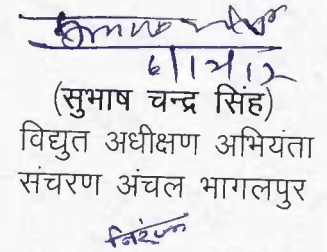 6/12/12
(सुभाष चन्द्र सिंह)
विद्युत अधीक्षण अभियंता
संचरण अंचल भागलपुर
निरंजन